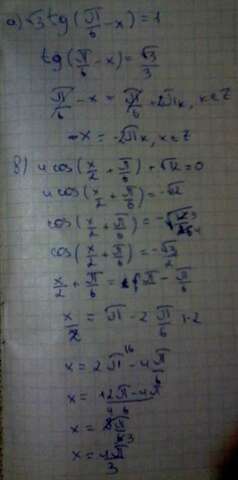 а) √3 tg(π/6 - x) = 1
tg(π/6 - x) = √3/3
π/6 - x = π/6 + 2πk, k∈Z
-x = -2πk, k∈Z
в) 4cos(x/2 + π/6) + √12 = 0
4cos(x/2 + π/6) = -√12
cos(x/2 + π/6) =
cos(x/2 + π/6) = -√3/2
x/2 + π/6 = π - π/6
x/2 = π - 2π/6 |·2
x = 2π - 4π/6
x = 12π - 4π/6
x = 8π/6
x = 4π/3